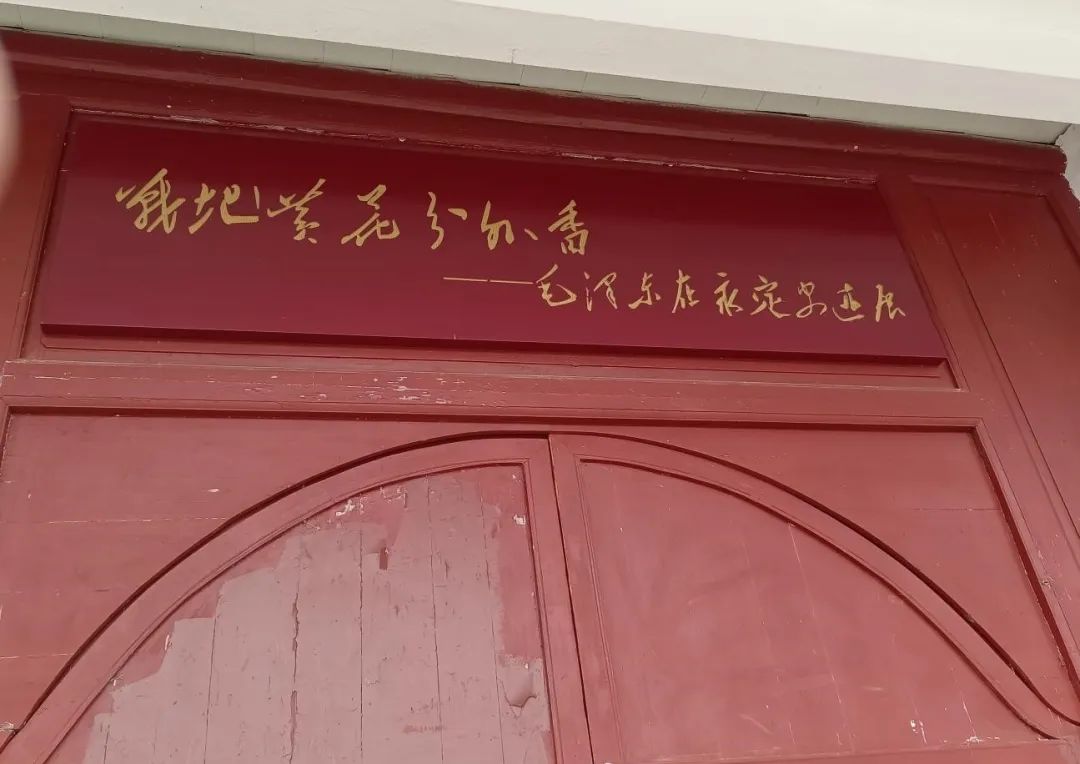 战地黄花分外香
——毛泽东在永定迹展